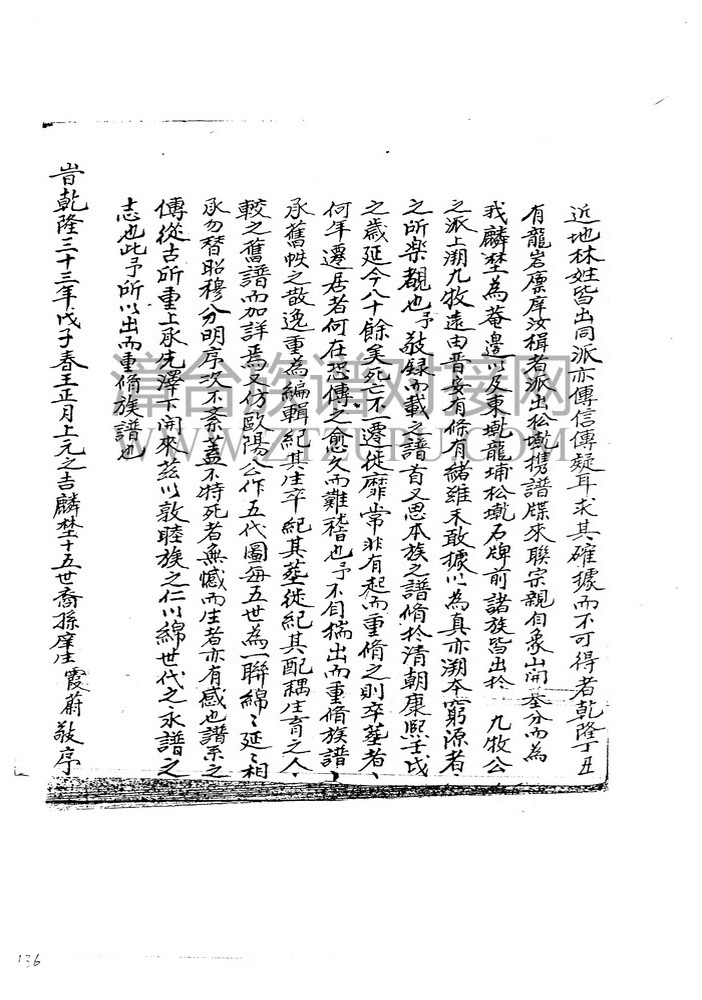 近地林姓皆出同派亦傳信傳疑耳求其確據而不可得者乾隆丁丑
有龍岩廩庠汝楫者派出松墘携譜牒來聯宗親自象山開基分而為
我麟埜為菴邊以及東墘龍埔松墘石牌前諸族皆出於 九牧公
之派上溯九牧遠由晋安有條有緒雖未敢據以為真亦溯本窮源者
之所楽覩也予敬録而載之譜首又思本族之譜脩於清朝康熙壬戌
之歳延今八十餘矣死亡不一遷徙靡常非有起而重脩之則卒塟者
何年遷居者何在恐傳之愈久而難稽也予不自揣出而重脩族譜
承舊帙之散逸重為編輯紀其生卒紀其塟徙紀其配耦生育之人
較之舊譜而加詳焉又仿歐陽公作五代圖每五世為一聯綿〻延〻相
承勿替昭穆分明序次不紊蓋不特死者無憾而生者亦有感也譜系之
傳從古所重上承先澤下開來茲以敦睦族之仁以綿世代之永譜之
志也此予所以出而重脩族譜也
旹乾隆三十三年戊子春王正月上元之吉麟埜十五世裔孫庠生霞蔚敬序
漳台族谱对接网
WWW.ZTZUPU.COM
136